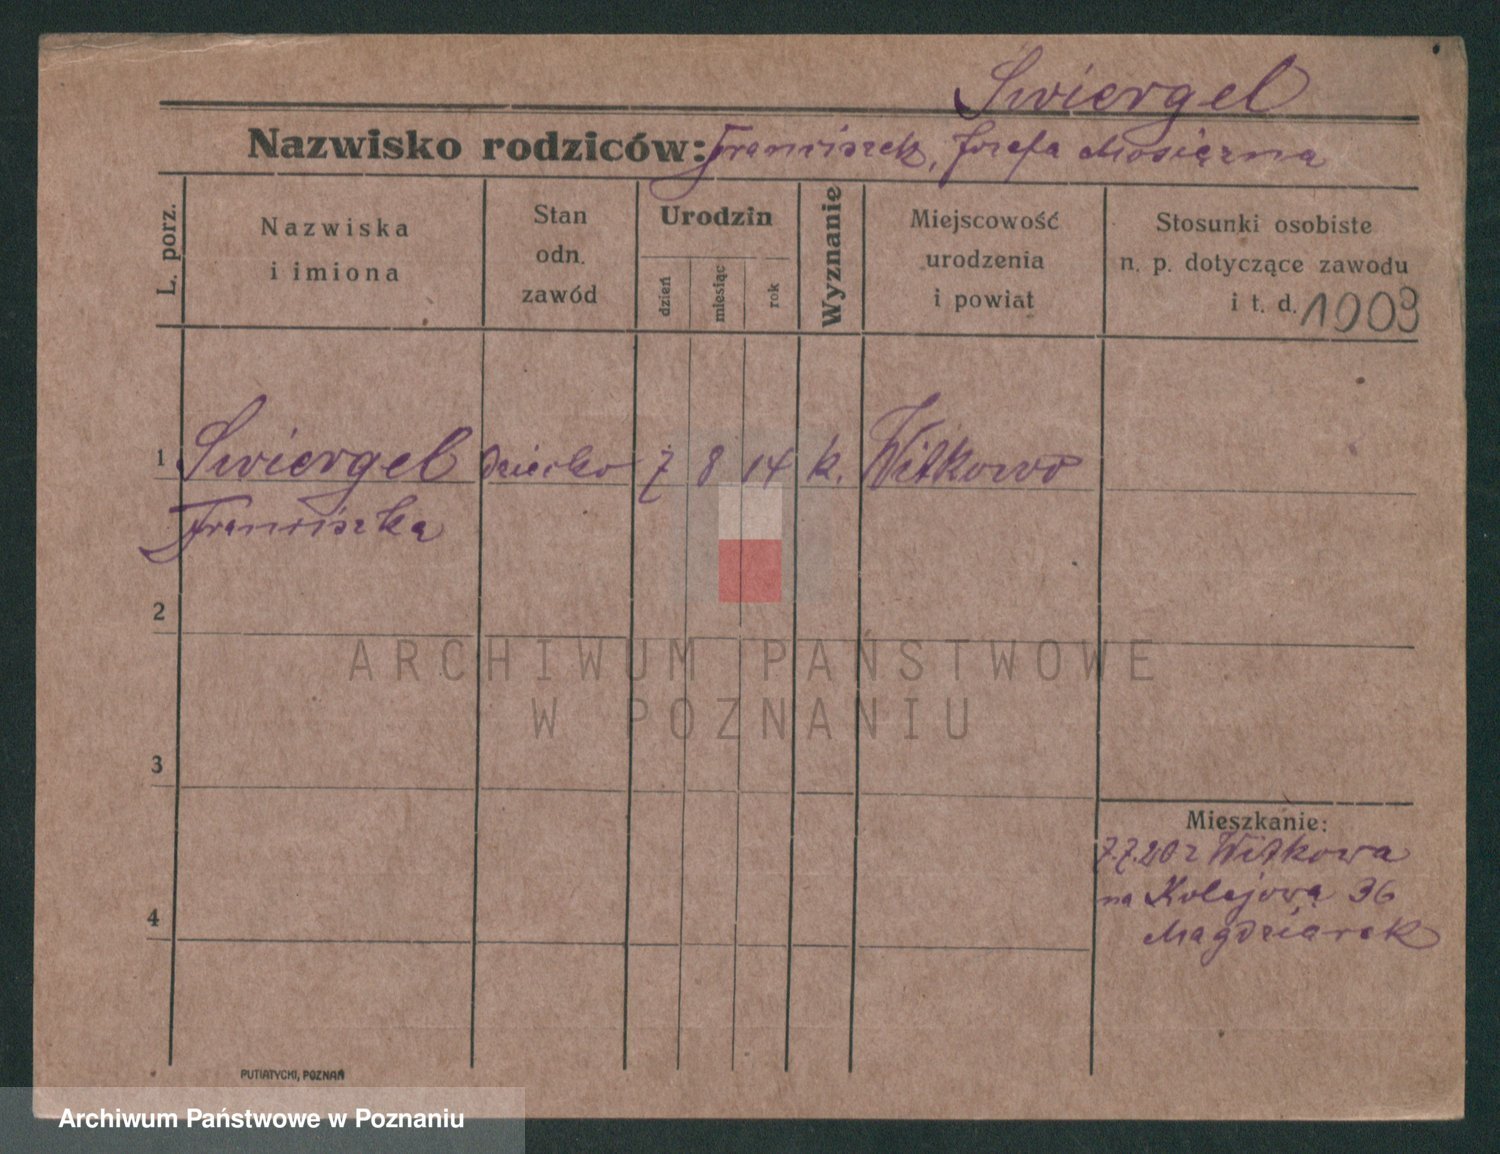 Swiergel
Nazwisko rodziców: Franciszek, Józefa Mosiężna
L. porz.
Nazwiska
i imiona
Stan
odn.
zawód
Urodzin
dzień
miesiąc
rok
Wyznanie
Miejscowość
urodzenia
i powiat
Stosunki osobiste
n. p. dotyczące zawodu
i t. d. 1903
1 Swiergel dziecko 7 8 14 k. Witkowo
Franciszka
2
ARCHIWUM PAŃSTWOWE
W POZNANIU
3
Mieszkanie:
7.7.20 z Witkowa
na Kolejową 36
Magdziarek
4
PUTIATYCKI, POZNAŃ
Archiwum Państwowe w Poznaniu